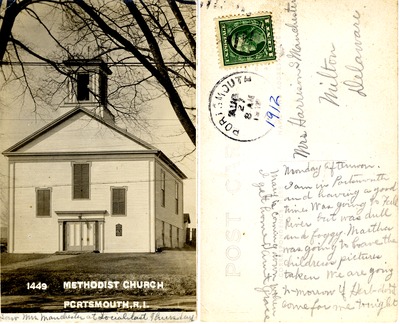 1449 METHODIST CHURCH
PORTSMOUTH, R.I.
Saw Mrs Manchester at Social last Thursday
PORTSMOUTH
AUG
27
8 AM
1912
POST CARD
Mrs Harrison Manchester
Milton
Delaware
Monday afternoon.
I am in Portsmouth
and having a good
time. Was going to Fall
River but was dull
and foggy. Marthea
was going to have the
childrens pictures
taken. We are going
to-morrow if Herbert
come for me tonight